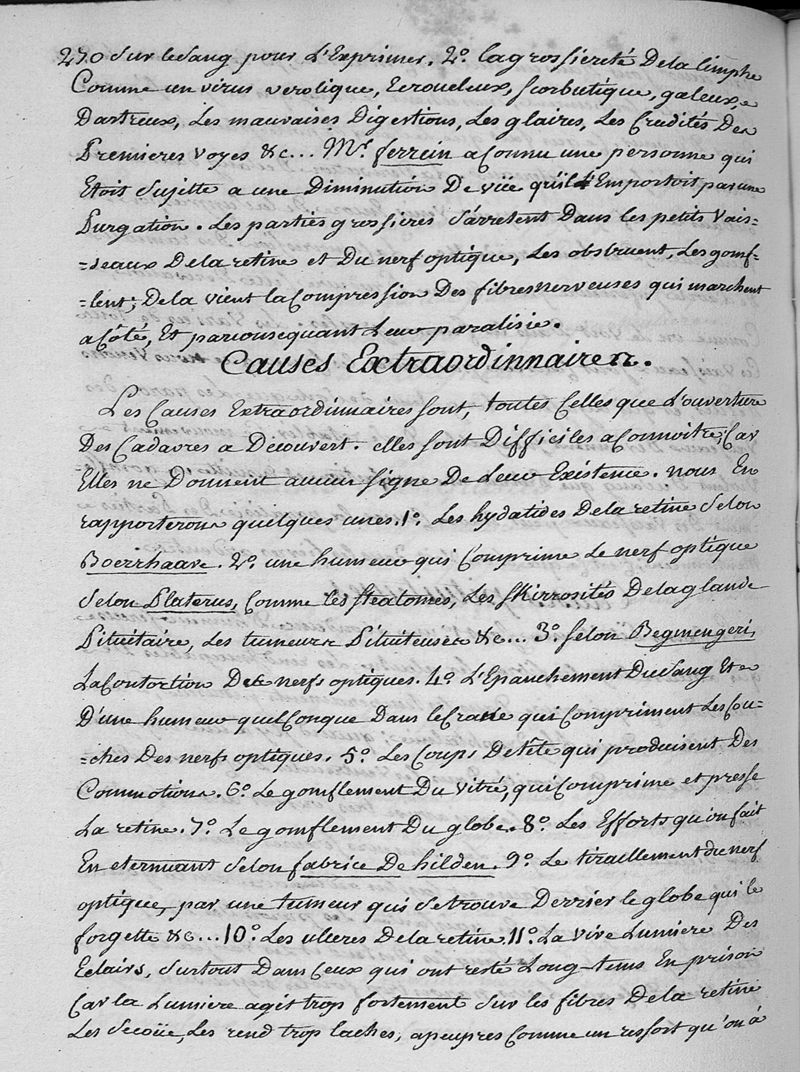 270 Sur le sang pour l'Exprimer. 2º. la grossiereté De la limphe
Comme un virus verolique, Ecrouelleux, scorbutique, galeux, e
Dartreux, Les mauvaises Digestions, Les glaires, Les Crudités Des
Premieres voyes &c... Mr. ferrein a Connu une personne qui
Etoit Sujette a une Diminution De vüe qu'il Emportoit par une
Purgation. Les parties grossieres S'arretent Dans les petits Vais=
=seaux De la retine et Du nerf optique, Les obstruent, Les gomf=
=lent; De la vient la Compression Des fibres nerveuses qui marchent
a Côté, Et par consequant Leur paralisie.
Causes Extraordinnaires.
Les Causes Extraordinnaires sont, toutes Celles que L'ouverture
Des Cadavres a Découvert. elles sont Difficiles a Connoitre, Car
Elles ne Donnent aucun signe De Leur Existence. nous En
rapporterons quelques unes. 1º. Les hydatides De la retine Selon
Boerrhaave. 2º. une humeur qui Comprime Le nerf optique
Selon Platerus, Comme les steatomes, Les skirrosités De la glande
Pituitaire, Les tumeurs Pituiteuses &c... 3º. selon Begmengeri,
La Contortion Des nerfs optiques. 4º. L'Epanchement Du Sang Et
D'une humeur quelConque Dans le Crane qui Compriment Les Cou=
=ches Des nerfs optiques. 5º. Les Coups De tête qui produisent Des
Commotions. 6º. Le gomflement Du vitré, qui Comprime et presse
La retine. 7º. Le gomflement Du globe. 8º. Les Efforts qu'on fait
En eternuant Selon fabrice De hilden. 9º. Le tiraillement du nerf
optique, par une tumeur qui Se trouve Derrier le globe qui le
forgette &c... 10º. Les ulceres De la retine. 11º. La vive Lumiere Des
Eclairs, Surtout Dans Ceux qui ont resté Long-tems En prison
Car la Lumiere agit trop fortement Sur les fibres De la retine
Les Secoüe, Les rend trop laches, a peu pres Comme un ressort qu'on a